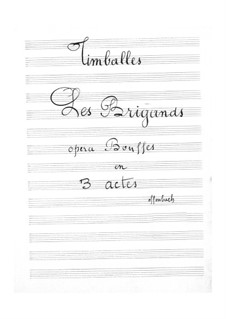 Timballes
Les Brigands
opera Bouffes
en
3 actes
offenbach